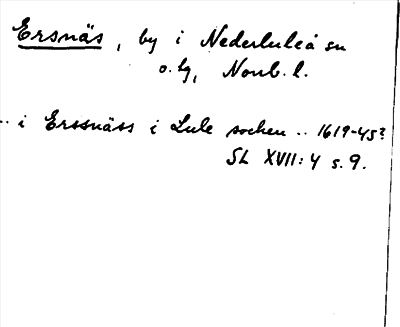 Ersnäs, by i Nederluleå sn
o. lg, Norrb. l.
.. i Erssnäss i Lule sochen .. 1619-45?
SL XVII:4 s. 9.